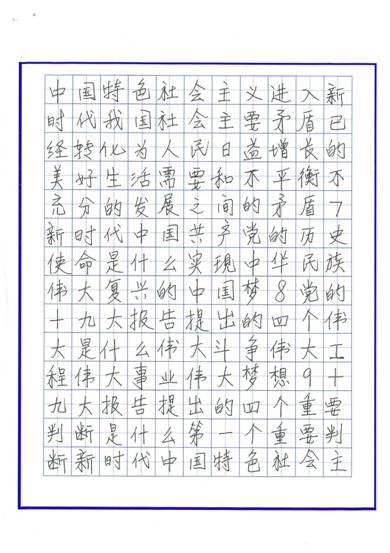 中国特色社会主义进入新
时代我国社会主要矛盾已
经转化为人民日益增长的
美好生活需要和不平衡不
充分的发展之间的矛盾7
新时代中国共产党的历史
使命是什么实现中华民族
伟大复兴的中国梦8党的
十九大报告提出的四个伟
大是什么伟大斗争伟大工
程伟大事业伟大梦想9十
九大报告提出的四个重要
判断是什么第一个重要判
断新时代中国特色社会主